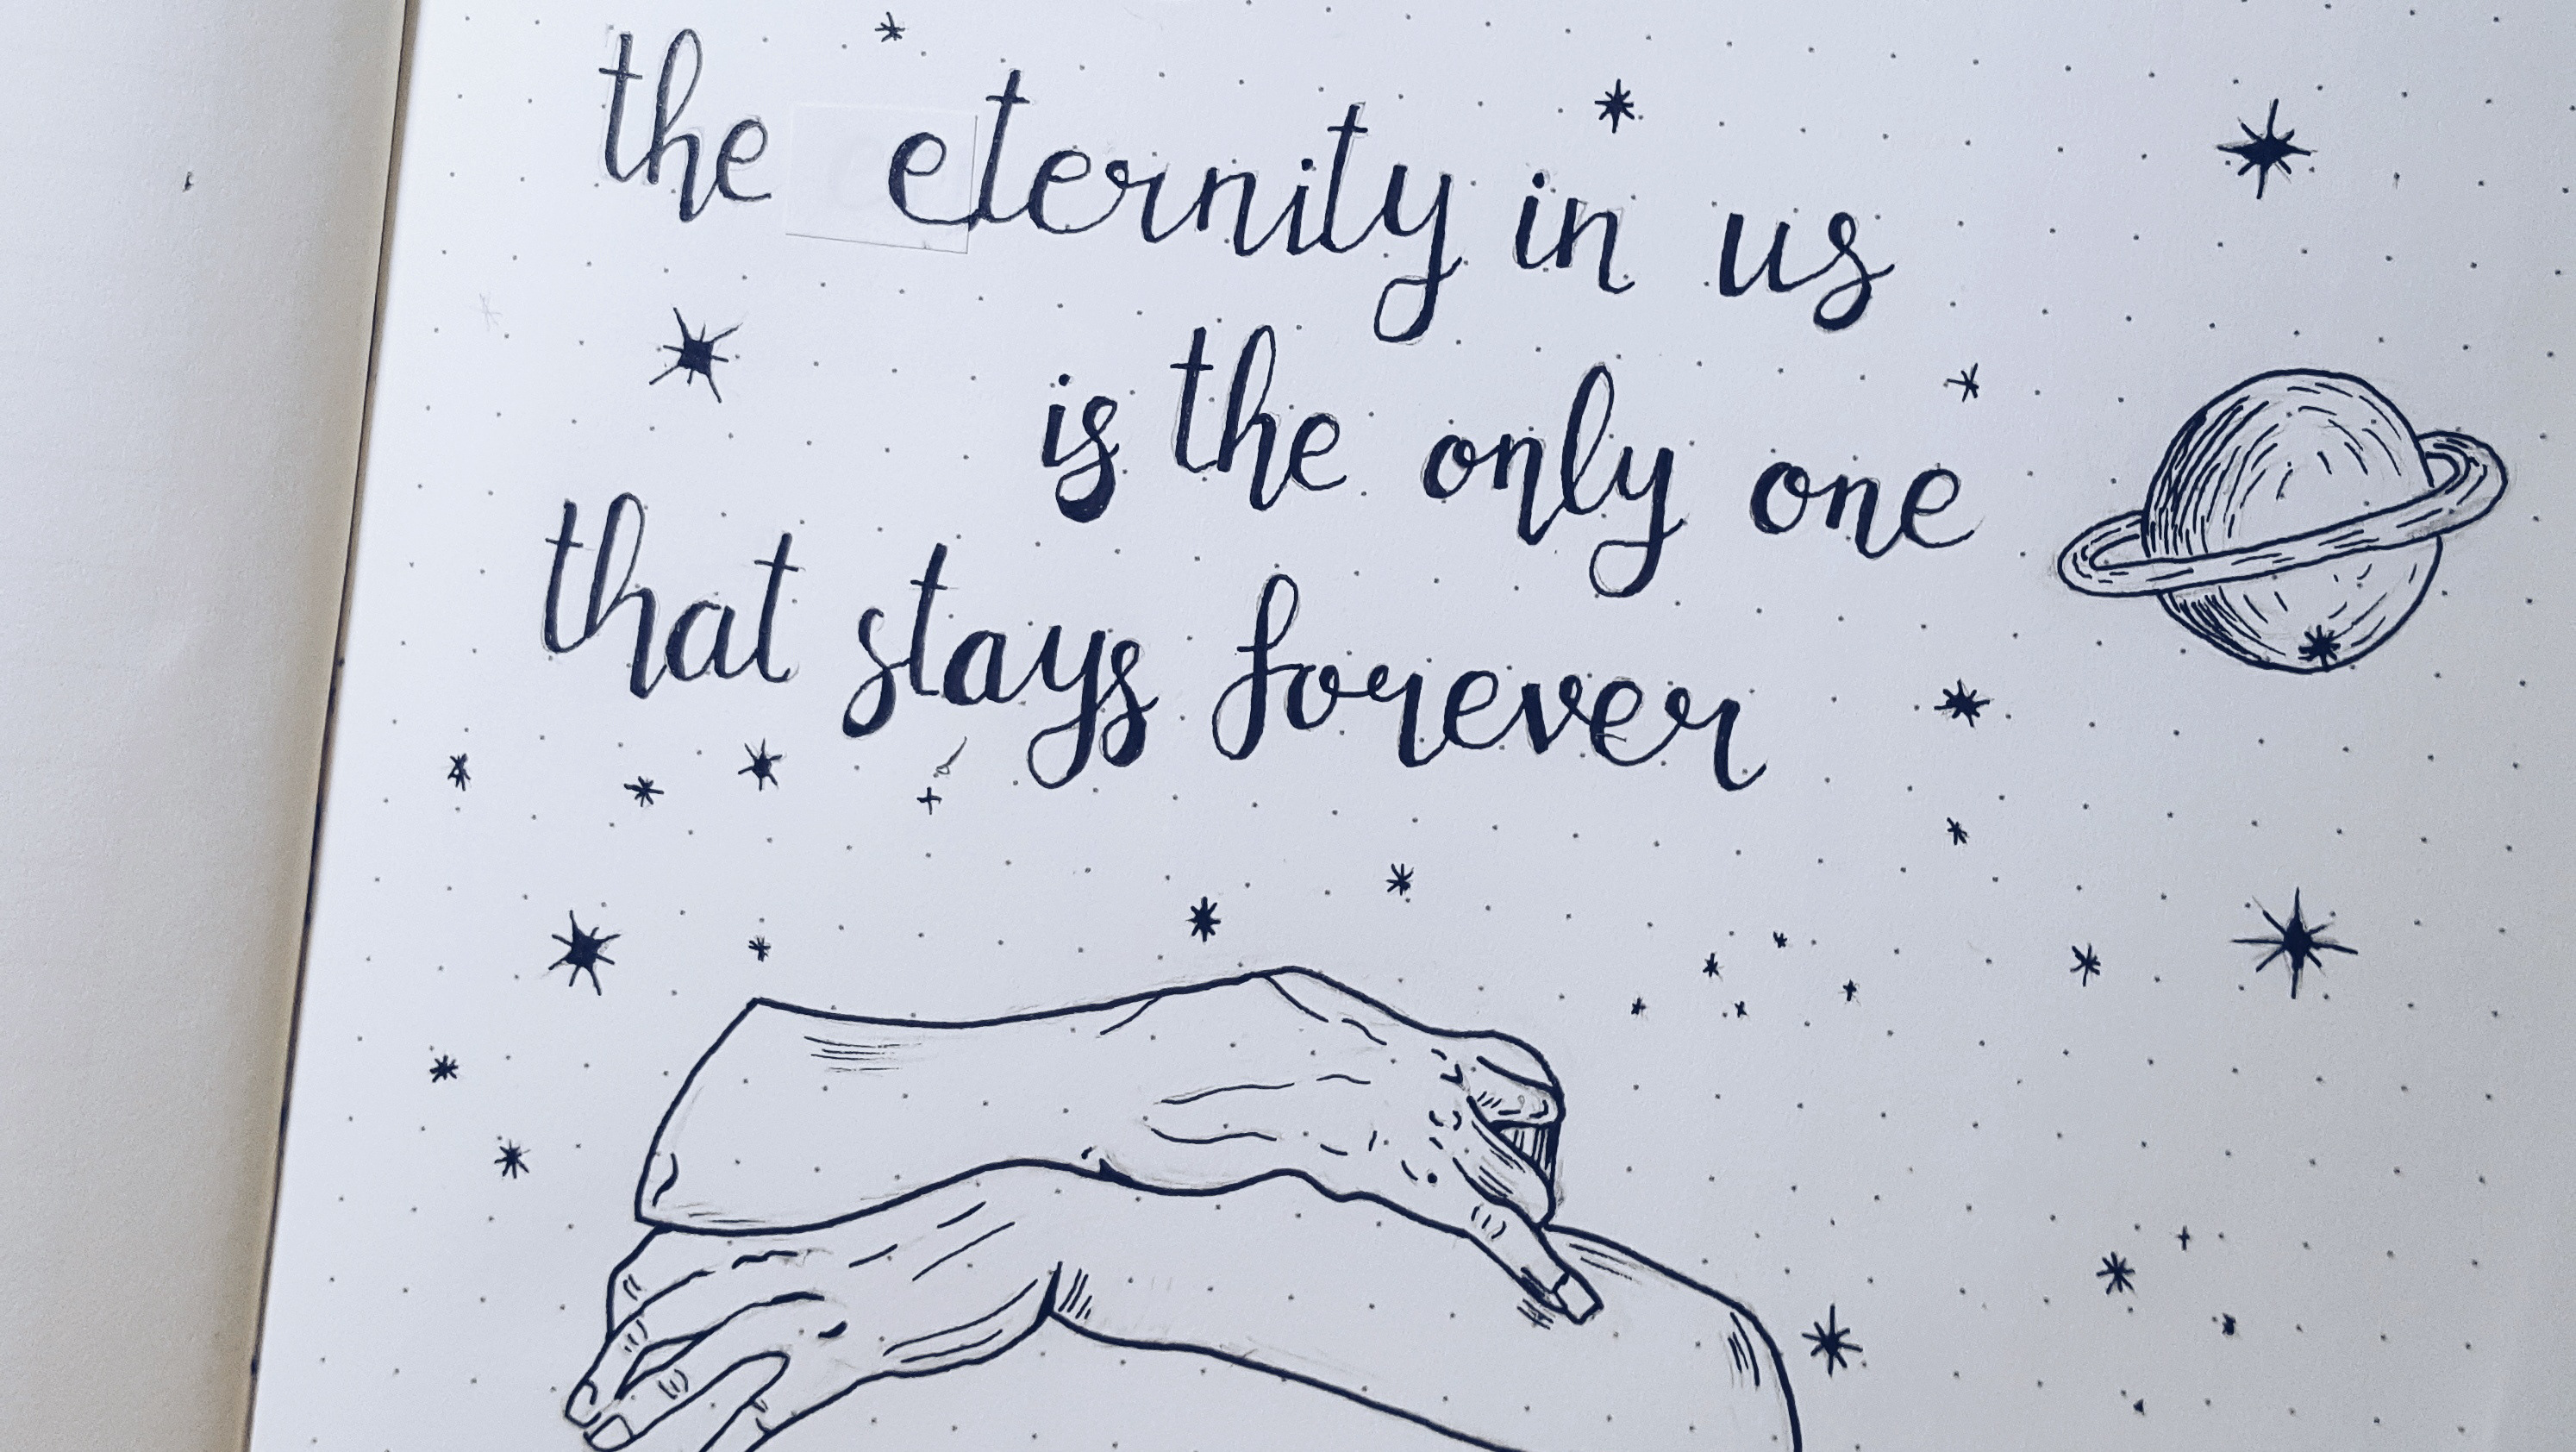 the eternity in us
is the only one
that stays forever